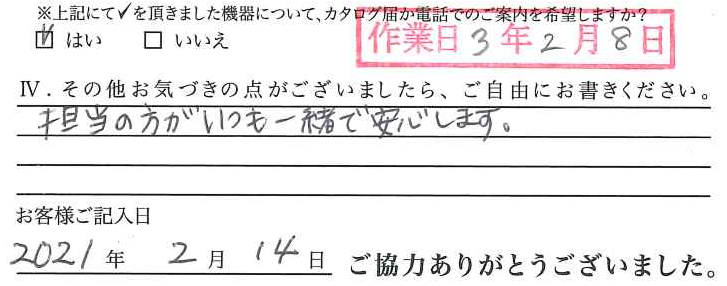 ※上記にて✓を頂きました機器について、カタログ届か電話でのご案内を希望しますか？
☑ はい □ いいえ
作業日 3年2月8日
Ⅳ．その他お気づきの点がございましたら、ご自由にお書きください。
担当の方がいつも一緒で安心します。
お客様ご記入日
2021年 2月 14日 ご協力ありがとうございました。